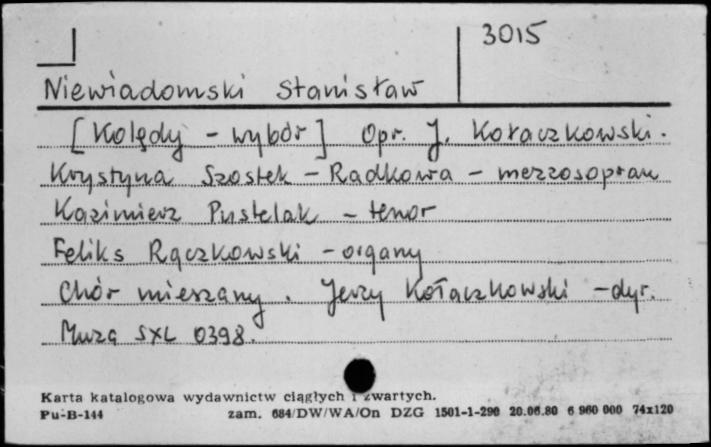 3015
Niewiadomski Stanisław
[Kolędy - wybór] Opr. J. Kołaczkowski.
Krystyna Szostek - Radkowa - mezzosopran
Kazimierz Pustelak - tenor
Feliks Rączkowski - organy
Chór mieszany. Jerzy Kołaczkowski - dyr.
Muza SXL 0398.
Karta katalogowa wydawnictw ciągłych i zwartych.
Pu-B-144 zam. 684/DW/WA/On DZG 1501-1-290 20.06.80 6 960 000 74x120